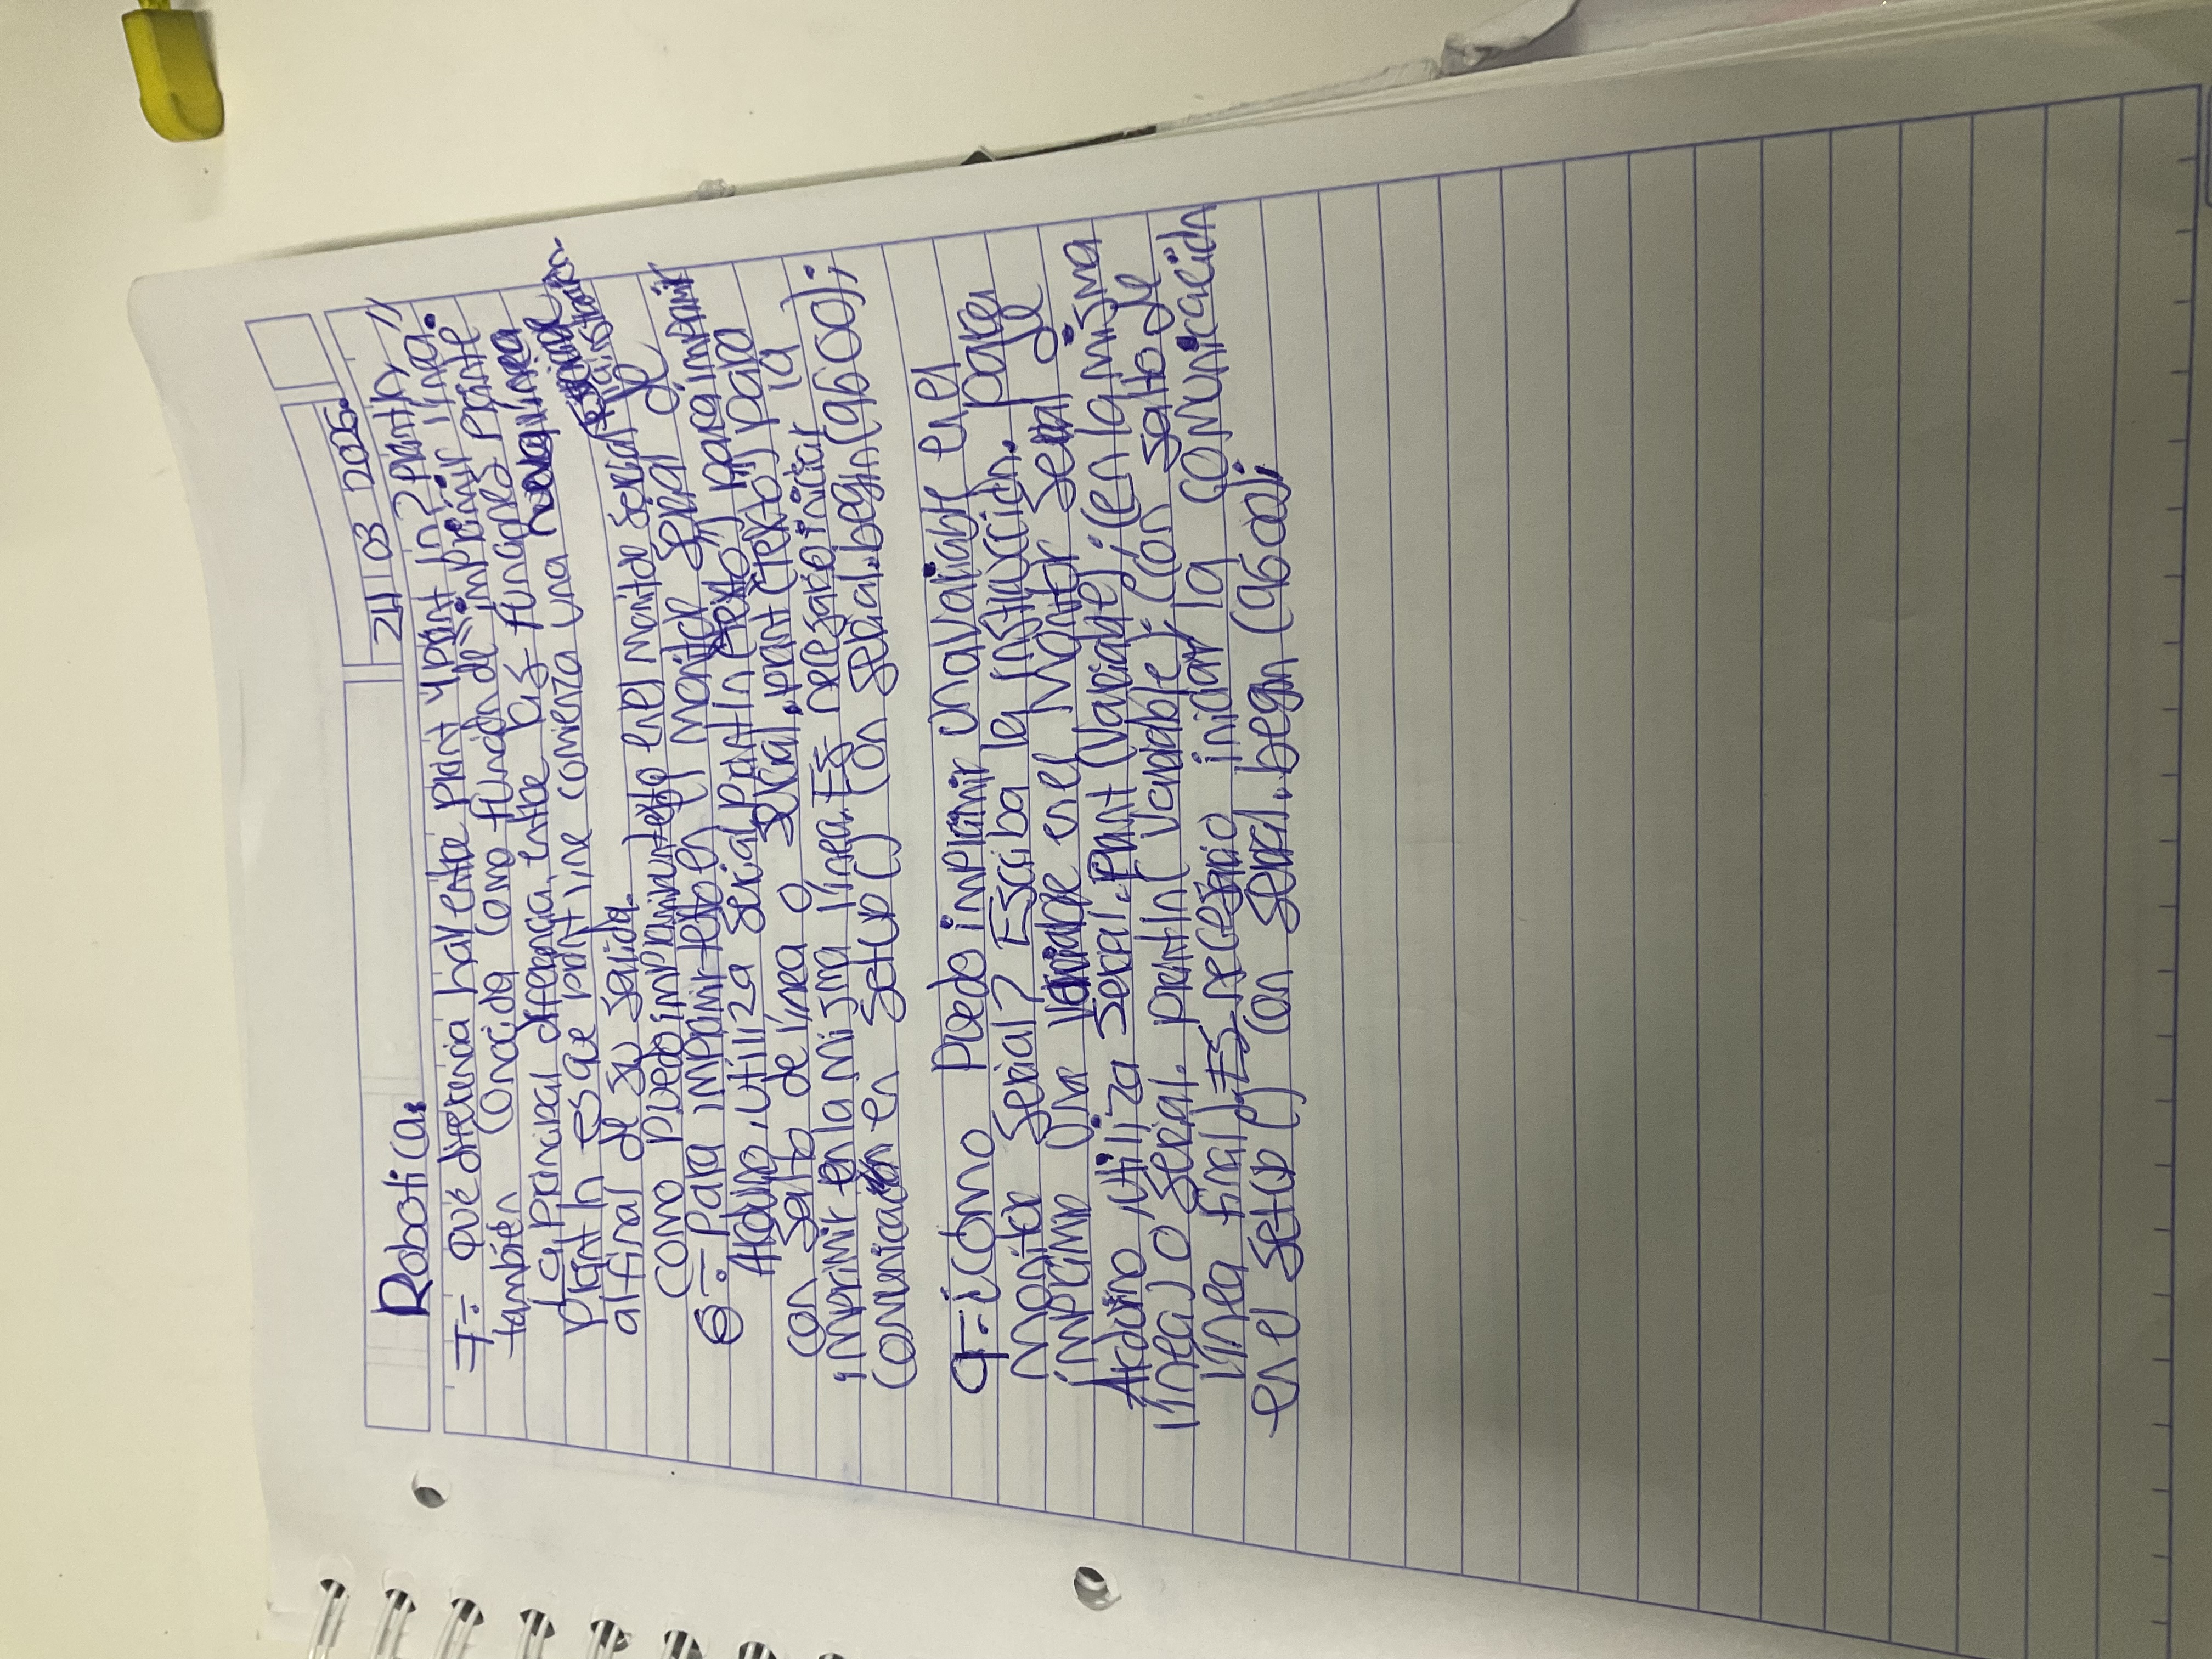 24 03 2026.
Robotica.
7-. que diferencia hay entre print y print ln? println //
también conocida como función de "imprimir línea".
La principal diferencia entre las funciones print e
println es que print line comienza una nueva línea
al final de su salida.
como puedo imprimir un texto en el monito serial de
8-. Para imprimir texto en el monitor serial de
Arduino, utiliza serial.println (texto) para imprimir
con salto de línea o serial.print (texto) para
imprimir en la misma línea. Es necesario iniciar la
comunicación en setup() con serial.begin(9600);
9-. ¿como puedo imprimir una variable en el
monitor serial? Escriba la instrucción. para
imprimir una variable en el Monitor serial de
Arduino, utiliza serial.print (variable); (en la misma
línea) o serial. println( variable); (con salto de
línea final). Es necesario iniciar la comunicación
en el setup () con serial.begin (9600);